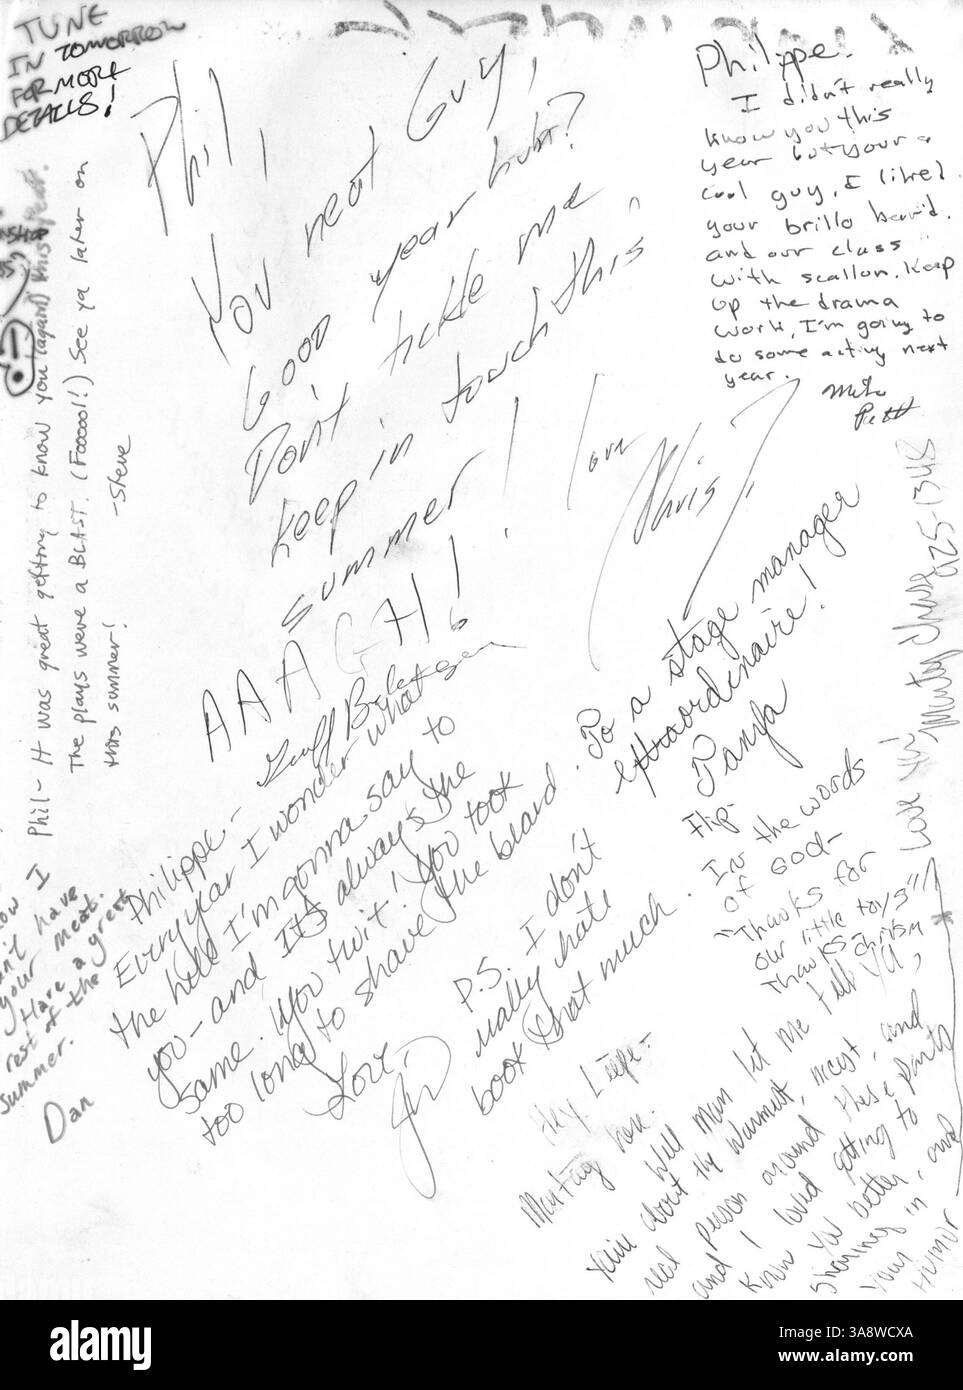 TUNE
IN TOMORROW
FOR MORE
DETAILS!
Phil,
You neat Guy,
Good year huh?
Don't tickle me
keep in touch this
summer!
love
Chris
Philippe.
I didn't really
know you this
year but your a
cool guy. I liked
your brillo beard.
and our class
with scallon. Keep
up the drama
work, I'm going to
do some acting next
year.
Phil- It was great getting to know you (again) this year.
The plays were a BLAST. (Fooooool!) See ya later on
this summer!
-Steve
AAAGH!
To a stage manager
extraordinaire!
Tanya
Philippe-
Every year I wonder what
the hell I'm gonna say to
you- and it's always the
same. You twit! You took
too long to shave the beard.
Love
Jill
P.S. I don't
really hate
book that much.
Flip-
In the words
of GOD-
"Thanks for
our little toys"
Thanks-
Love
925-1348
I
have
your meat.
Have a great
rest of the
summer.
Dan
Hey
Montag here.
Well man let me tell ya,
you're about the warmest, nicest, and
real person around these parts
and I loved getting to
know ya better, and
sharing in
your
Humor
alamy
Image ID: 3A8WCXA
www.alamy.com